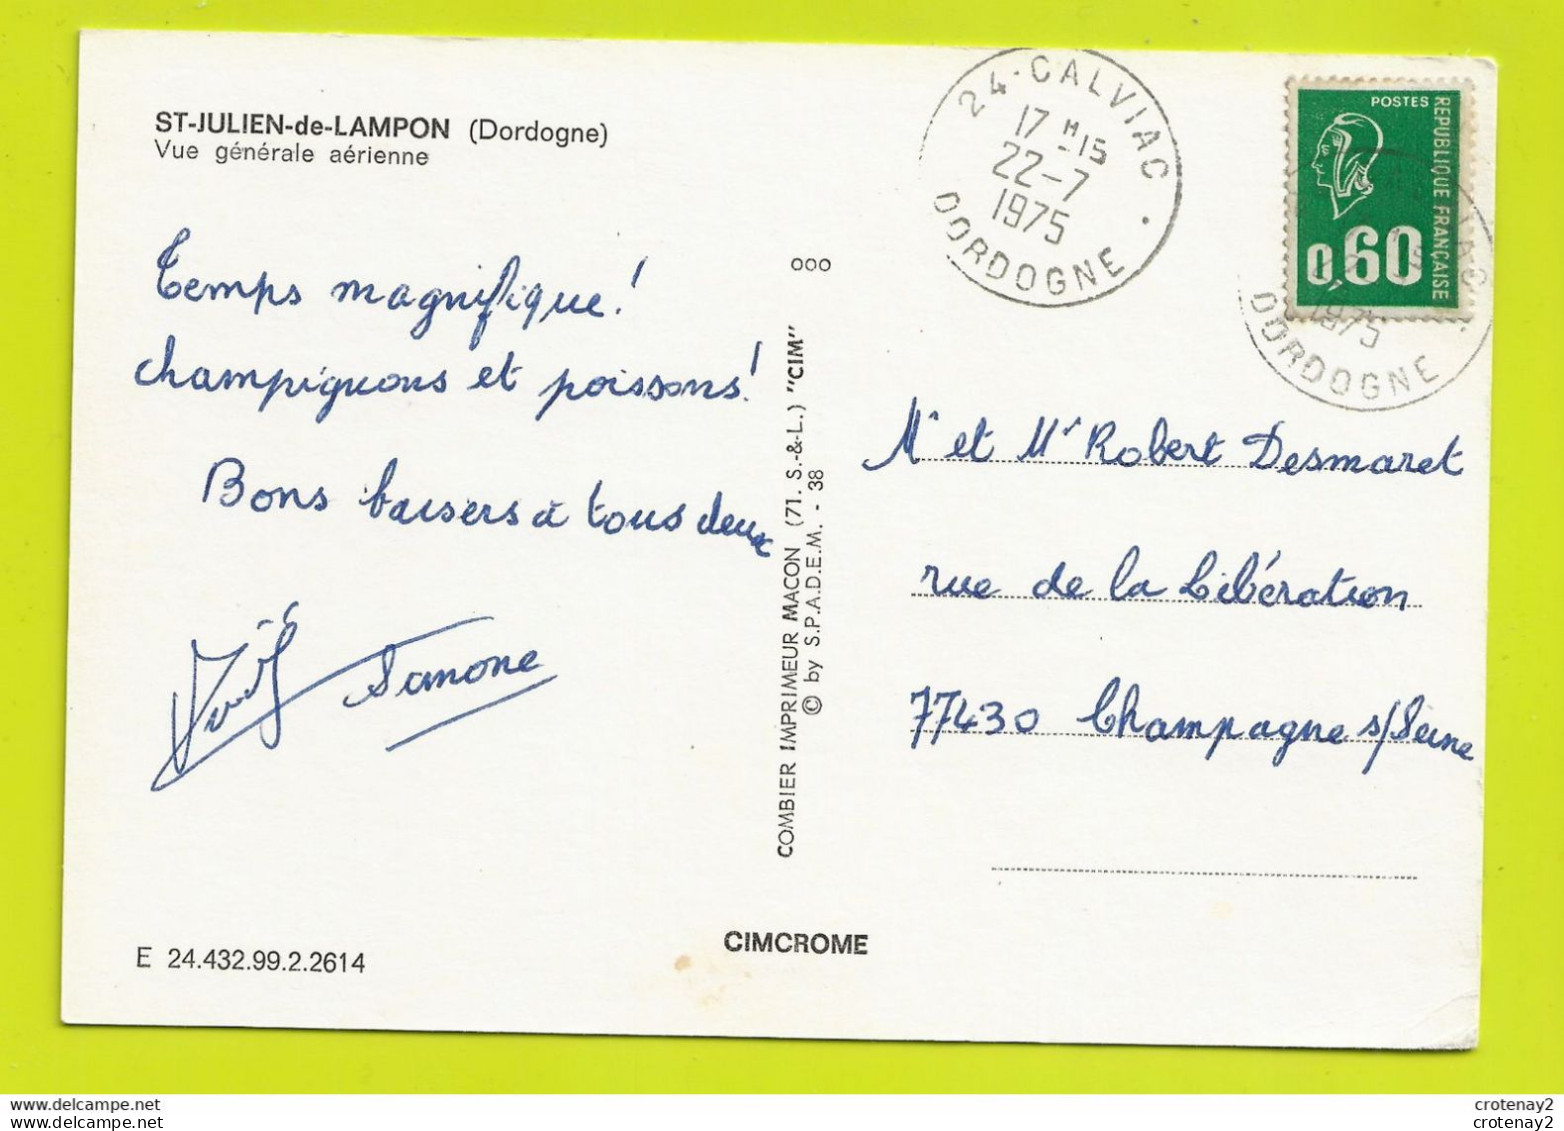 ST-JULIEN-de-LAMPON (Dordogne)
Vue générale aérienne
Temps magnifique!
champignons et poissons!
Bons baisers à tous deux
Simone
E 24.432.99.2.2614
ooo
COMBIER IMPRIMEUR MACON (71. S.-&-L.) "CIM"
© by S.P.A.D.E.M. - 38
CIMCROME
24-CALVIAC
17 H 15
22-7
1975
DORDOGNE
POSTES
REPUBLIQUE FRANÇAISE
0,60
1975
DORDOGNE
Mr et Mr Robert Desmaret
rue de la Libération
77430 Champagne s/Seine
crotenay2
crotenay2